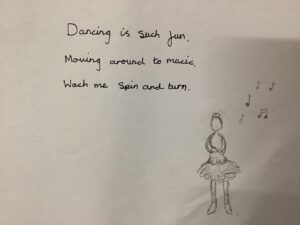 Dancing is such fun,
Moving around to music,
Wach me spin and turn.